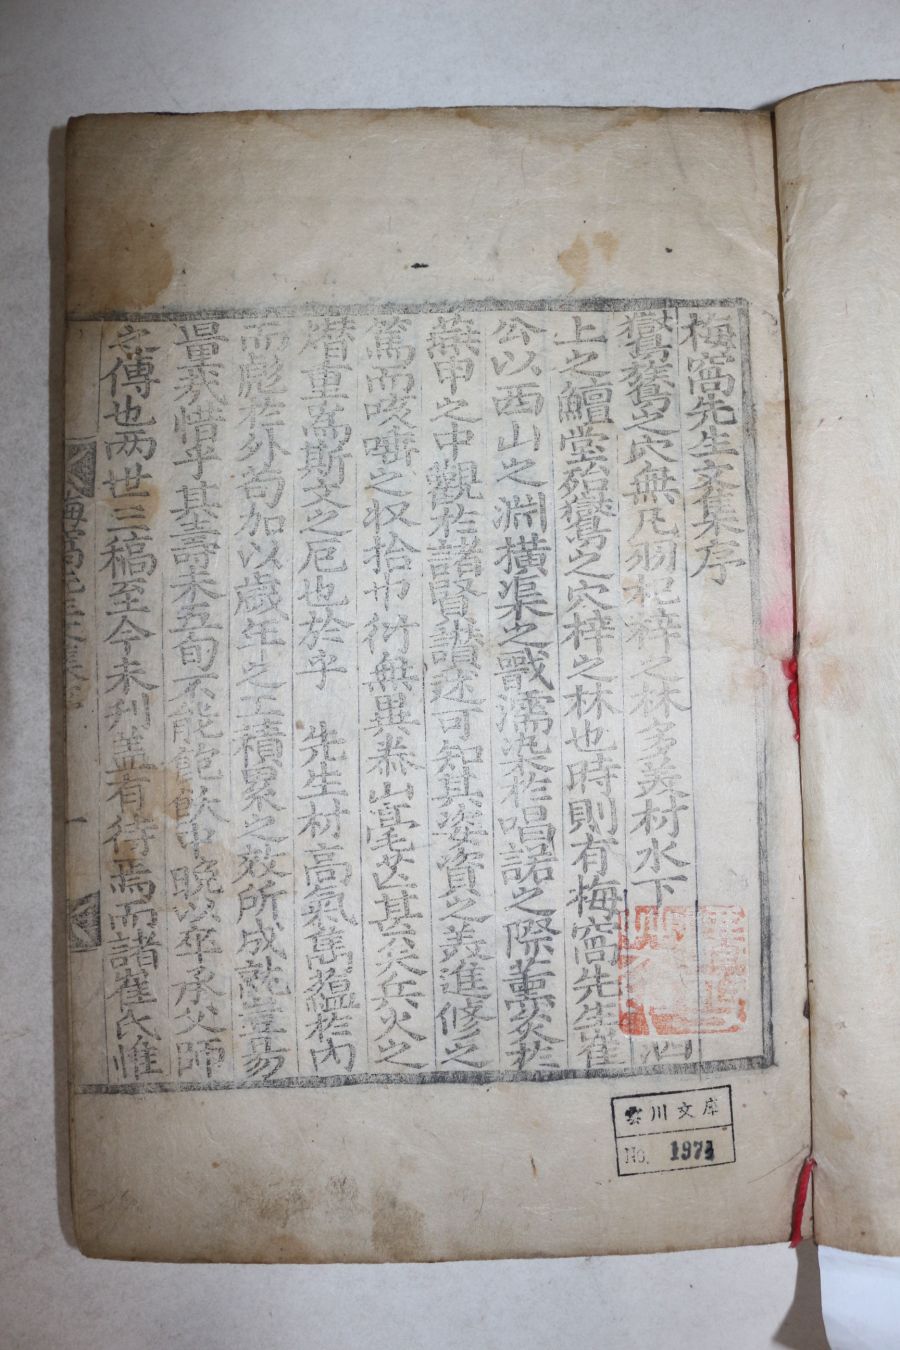 梅窩先生文集序
鸑鷟之穴無凡羽杞梓之林多美材水下泗
上之鱣堂殆鸑鷟之穴梓之林也時則有梅窩先生崔
公以西山之淵橫渠之戬濡染於唱諾之際薰炙於
無甲之中觀於諸賢讚述可知其姿資之美進修之
篤而咳嚌之収拾巾衍無異泰山毫芒甚矣兵火之
熸重爲斯文之厄也於乎 先生材高氣萬蘊於內
而彪於外苟加以歲年之工積累之效所成就豈易
量哉惜乎其壽未五旬不能飽飫中晩以卒承父師
之傳也两世三稿至今未刋盖有待焉而諸崔氏惟
梅窩先生文集序
一
雲川文庫
No. 1974